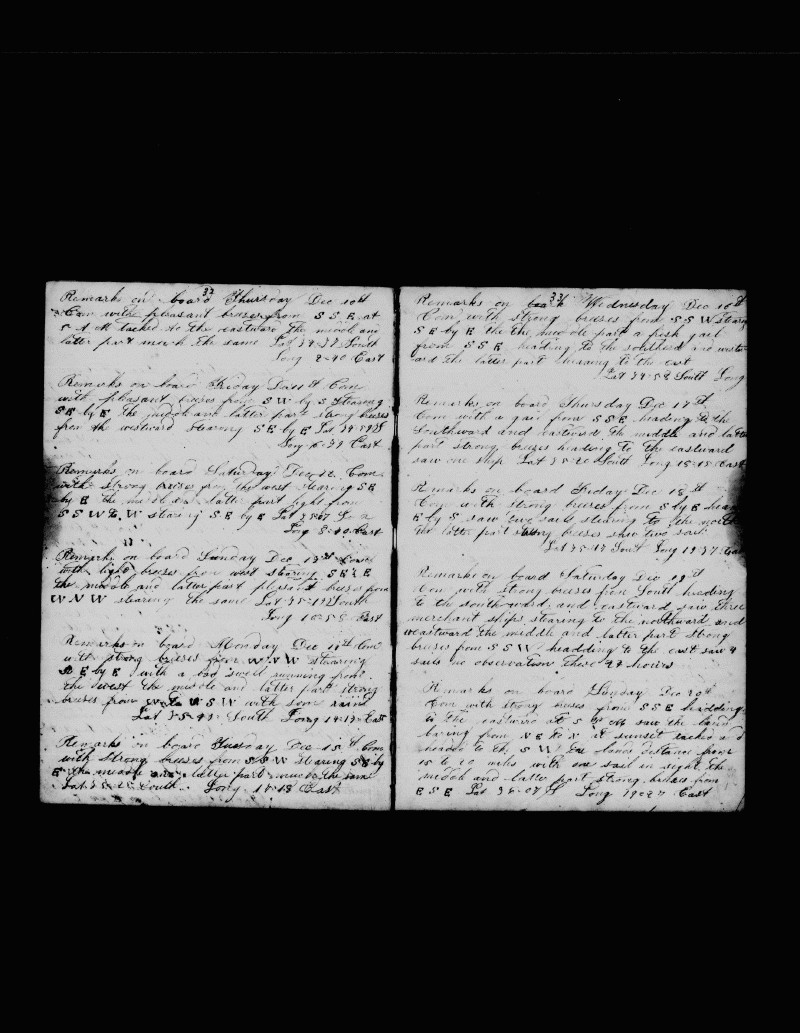 32
Remarks on board Thursday Dec 10th
Com withe pleasant breezes from S S E at
A M tacked to the eastward the midde and
latter part much the same Lat 34-37 South
Long 2-40 East
Remarks on board Friday Dec 11th Com
with pleasant breses from S W by S stearing
SE by E the middle and latter part strong breses
from the westward stearing S E by E Lat 34-59 S
Long 5-39 East
Remarks on board Saturday Dec 12 Com
with strong breses from the west stearing SE
by E the middle latter part light from
S S W to W stearing S E by E Lat
Long 8-40 East
Remarks on board Sunday Dec 13th Com
with light breses from west stearing SE by E
the middle and latter part plesant breses from
W N W stearing the same Lat 35-19 South
Long 10-58 East
Remarks on board Monday Dec 14th Com
with strong breses from W N W stearing
SE by E with a bad swell running from
the swest the middle and latter part strong
breses from W S W with som rain
Lat 35-43 South Long 14-17 East
Remarks on board Tuesday Dec 15th Com
with strong breses from S S W stearing SE by
E the middle and latter part much the same
Lat 35-26 South Long 17-18 East
33
Remarks on board Wednesday Dec 16th
Com with strong breses from S S W stearing
SE by E the the middle part a fresh gail
from S S E heading to the
ard the latter part heading to the east
Lat 34-58 South Long
Remarks on board Thursday Dec 17th
Com with a gail from S S E heading to the
Southward and eastward the middle and latter
part strong breses heading to the eastward
saw one ship Lat 35-20 South Long 18-15 East
Remarks on board Friday Dec 18th
Com with strong breses from S by E heading
E by S saw two sails stearing to the north
the latter part strong breses saw two sail
Lat 35-47 South Long 19-37 East
Remarks on board Saturday Dec 19th
Com with strong breses from South heading
to the southward and eastward saw three
merchant ships stearing to the northward and
westward the middle and latter part strong
breses from S S W heading to the east saw 4
sails no observation these 24 hours
Remarks on board Sunday Dec 20th
Com with strong breses from S S E heading
to the eastward at 5 P M saw the land
baring from N E to N at sunset tacked and
headed to the S W the land distance from
15 to 20 miles with one sail in sight the
middle and latter part strong breses from
E S E Lat 36-07 S Long 19-27 East